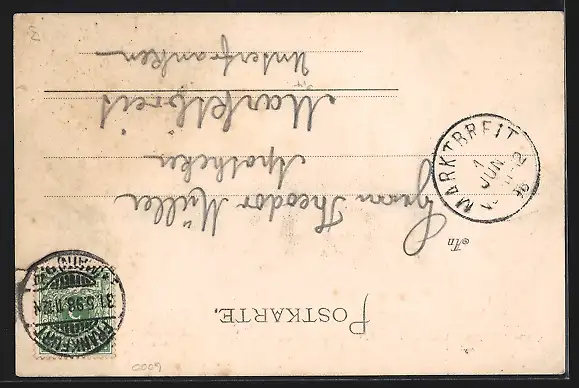 POSTKARTE.
An
Herrn Theodor Müller
Apotheker
Marktbreit
Unterfranken
MARKTBREIT
1
JUN
FRANKFURT
31.5.98.11-12N.
0009